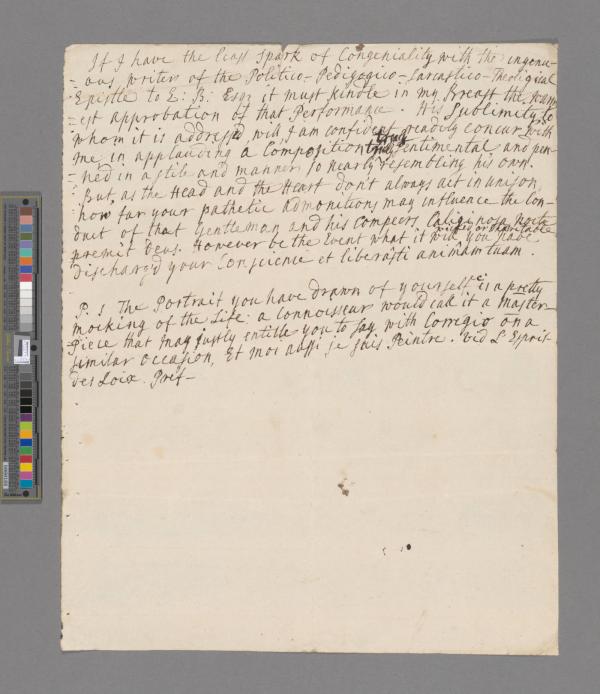 If I have the least Spark of Congeniality with the ingenu=
=ous writer of the Politico-Pedigogico-Sarcastico-Theological
Epistle to E: B: Esqr it must kindle in my Breast the warm
=est approbation of that Performance. His Sublimity to
whom it is address'd, will I am confident, readily concur with
me in applauding a Composition truly Sentimental and pen=
=ned in a stile and manner so nearly resembling his own.
But, as the Head and the Heart don't always act in unison,
how far your pathetic Admonitions may influence the Con=
duct of that Gentleman and his Compeers Caliginosa Nocte
premit Deus. However be the Event what it will you have
discharg'd your Conscience et liberasti animam tuam.
P. S. The Portrait you have drawn of yourself is a pretty
mocking of the Life: a Connoisseur would call it a Master-
=Piece that may justly entitle you to say with Corregio on a
similar occasion, Et moi aussi je suis Peintre. Vid L'Esprit
des Loix. Pref-